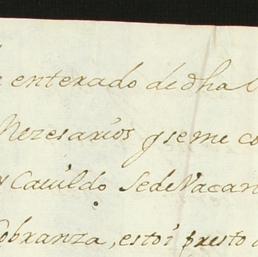 enterado de dha
Nezesarios q se me co
Cauildo Sede Vacan
obranza, estoi presto